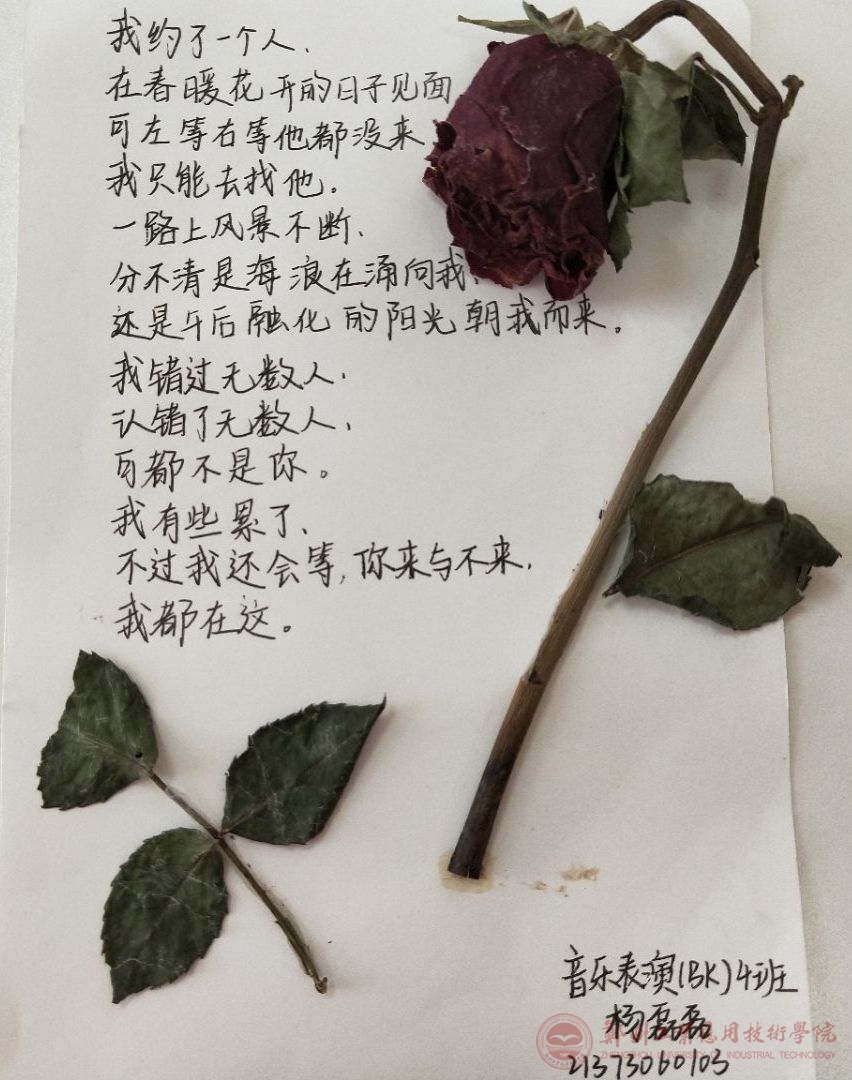 我约了一个人、
在春暖花开的日子见面
可左等右等他都没来
我只能去找他。
一路上风景不断、
分不清是海浪在涌向我、
还是午后融化的阳光朝我而来。
我错过无数人、
认错了无数人、
可都不是你。
我有些累了、
不过我还会等,你来与不来,
我都在这。
音乐表演(BK)4班
杨磊磊
鄭州工業應用技術學院
ZHENGZHOU UNIVERSITY OF INDUSTRIAL TECHNOLOGY
21373060103